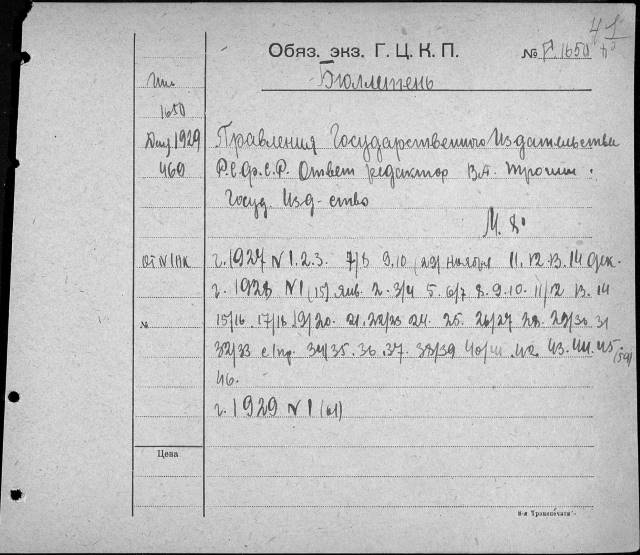 41
Обяз. экз. Г. Ц. К. П. № Г. 1650
Бюллетень
1650
1929 Правления Государственного Издательства
460 Р.С.Ф.С.Р. Ответ редактор В.А.
Госуд. Изд-ство
М. 8°
от N 1 г. 1927 N 1. 2. 3. 7/8 9. 10 (29) ноября 11. 12. 13. 14 дек.
г. 1928 N 1 (15) янв. 2. 3/4 5. 6/7 8. 9. 10. 11/12 13. 14
№ 15/16. 17/18 19/20. 21. 22/23 24. 25. 26/27 28. 29/30. 31
32/33 с пр. 34/35. 36. 37. 38/39 40/41. 42. 43. 44. 45. (59)
46.
г. 1929 N 1 (61)
Цена
8-я "Транспечати".